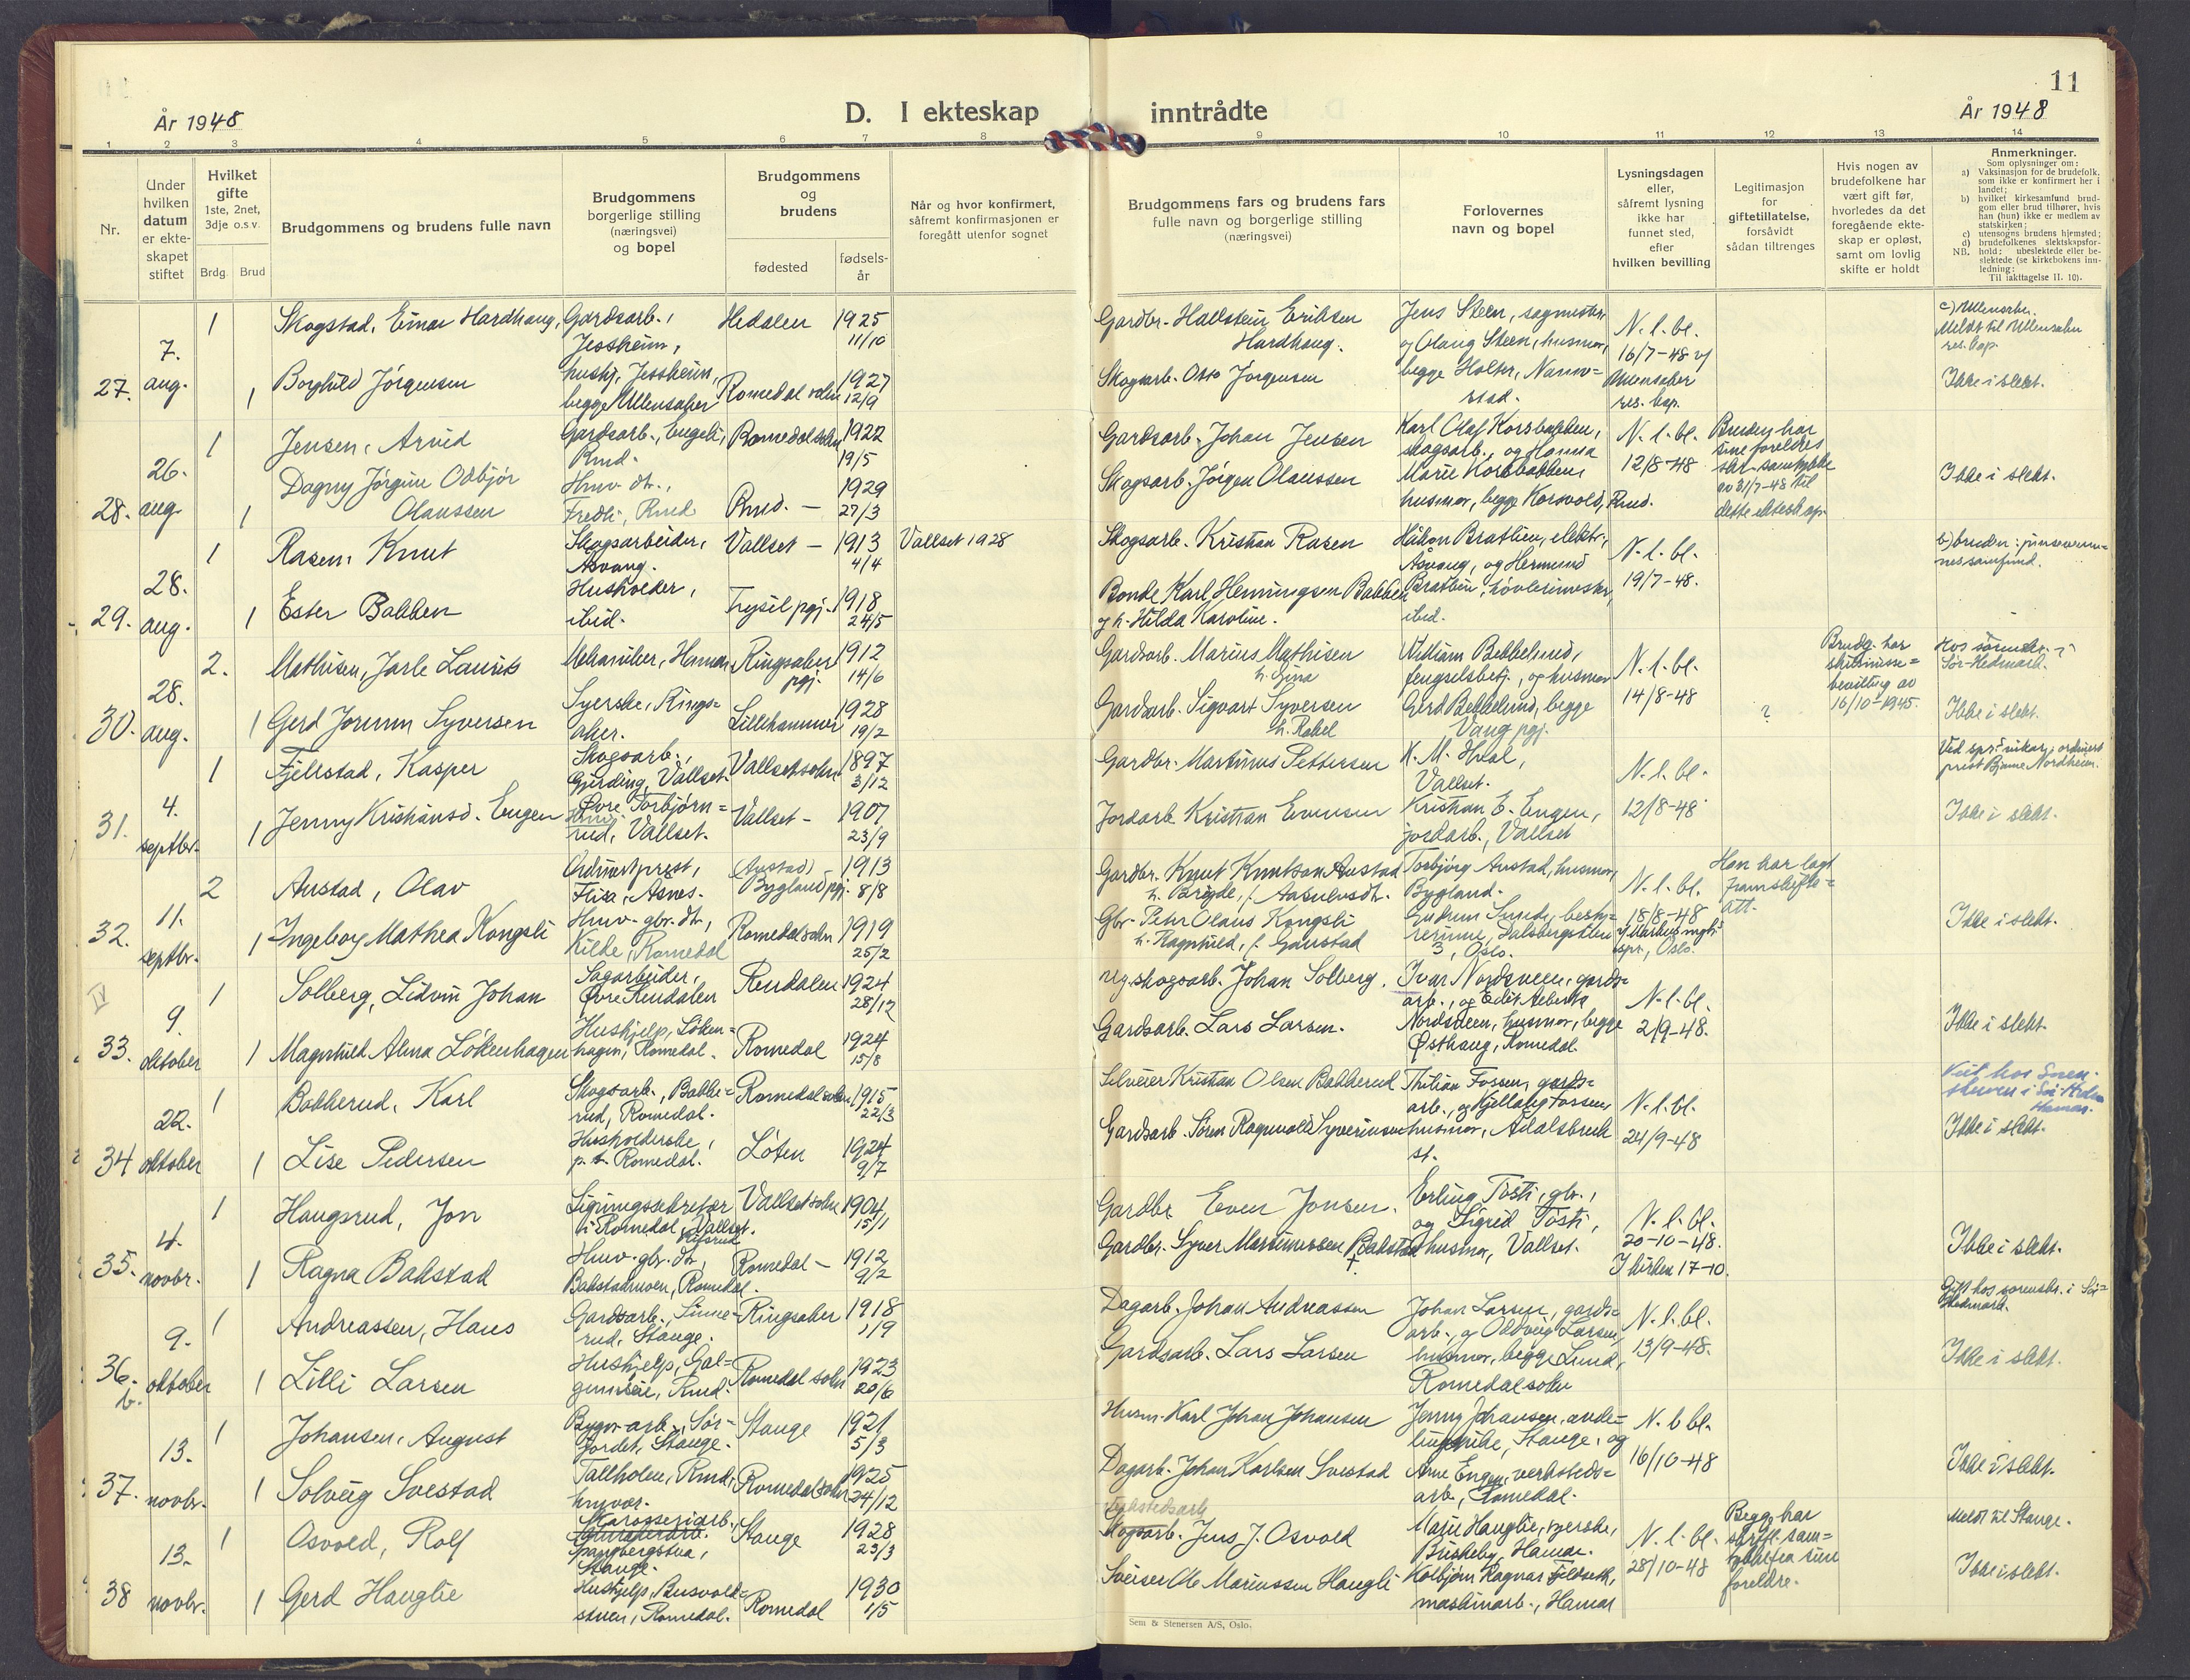 11
År 1948
D. I ekteskap inntrådte
År 1948
1 2 3 4 5 6 7 8 9 10 11 12 13 14
Nr.
Under hvilken datum er ekteskapet stiftet
Hvilket gifte 1ste, 2net, 3dje o.s.v.
Brdg. Brud
Brudgommens og brudens fulle navn
Brudgommens borgerlige stilling (næringsvei) og bopel
Brudgommens og brudens
fødested
fødsels-år
Når og hvor konfirmert, såfremt konfirmasjonen er foregått utenfor sognet
Brudgommens fars og brudens fars fulle navn og borgerlige stilling (næringsvei)
Forlovernes navn og bopel
Lysningsdagen eller, såfremt lysning ikke har funnet sted, efter hvilken bevilling
Legitimasjon for giftetillatelse, forsåvidt sådan tiltrenges
Hvis nogen av brudefolkene har vært gift før, hvorledes da det foregående ekteskap er opløst, samt om lovlig skifte er holdt
Anmerkninger.
Som oplysninger om:
a) Vaksinasjon for de brudefolk, som ikke er konfirmert her i landet;
b) hvilket kirkesamfund brudgom eller brud tilhører, hvis han (hun) ikke er medlem av statskirken;
c) utensogns brudens hjemsted;
d) brudefolkenes slektskapsforhold; ubeslektede eller beslektede (se kirkebokens innledning:
NB. Til iakttagelse II. 10).
27. 7. aug.
1 Skogstad, Einar Hardhaug, Gardsarb., Jessheim, Hedalen 1925 11/10
1 Borghild Jörgensen hushj. Jessheim, begge Ullensaker Romedal sokn 1927 12/9
Gardbr. Hallstein Eriksen Hardhaug.
Skogsarb. Otto Jörgensen
Jens Steen, sagmester, og Olaug Steen, husmor, begge Holter, Nannestad.
N. l. bl. 16/7-48 v/ Ullensaker res. kap.
c) Ullensaker. Meldt til Ullensaker res. kap.
Ikke i slekt.
28. 26. aug.
1 Jensen, Arvid Gardsarb., Engeli, Rmd. Romedal sokn 1922 19/5
1 Dagny Jörgine Odbjör Olaussen Hmv. dt., Fredli, Rmd Rmd. — 1929 27/3
Gardsarb. Johan Jensen
Skogsarb. Jörgen Olaussen
Karl Olaf Korsbakken, skogsarb., og Hanna Marie Korsbakken, husmor, begge Korsvold, Rmd.
N. l. bl. 12/8-48
Bruden har sine foreldres skr. samtykke av 31/7-48 til dette ekteskap.
Ikke i slekt.
29. 28. aug.
1 Rasen, Knut Skogsarbeider, Åsvang. Vallset — 1913 4/4 Vallset 1928
1 Ester Bakken Husholder, ibid. Trysil pgj. 1918 24/5
Skogsarb. Kristian Rasen
Bonde Karl Henningsen Bakken og h. Hilda Karoline.
Håkon Bratlien, elektr., Åsvang, og Hermund Bratlien, høvlerimester, ibid.
N. l. bl. 19/7-48.
b) bruden: pinsevennes samfund.
30. 28. aug.
2. Mathisen, Jarle Laurits Mekaniker, Hamar Ringsaker pgj. 1912 14/6
1 Gerd Jorunn Syversen Syerske, Ringsaker. Lillehammer 1928 19/2
Gardsarb. Marius Mathisen h. Gina
Gardsarb. Sigvart Syversen h. Rakel
William Bekkelund, fengselsbetj., og husmor Gerd Bekkelund, begge Vang pgj.
N. l. bl. 14/8-48
?
Brudg. har skilsmissebevilling av 16/10-1945.
Hos sorenskr. i Sør-Hedmark.
Ikke i slekt.
31. 4. septbr.
1 Fjellstad, Kasper Skogsarb., Gjerding, Vallset. Vallset sokn 1897 3/12
1 Jenny Kristiansd. Engen Øvre Torbjørnrud, Vallset. Vallset — 1907 23/9
Gardbr. Martinus Pettersen
Jordarb. Kristian Evensen
K. M. Hval, Vallset.
Kristian E. Engen, jordarb., Vallset
N. l. bl. 12/8-48
Ved spr.vikar, ordinert prest Bjarne Nordheim.
Ikke i slekt.
32. 11. septbr.
2 Austad, Olav Ordinert prest, Flisa, Åsnes. (Austad) Bygland pgj. 1913 8/8
1 Ingeborg Mathea Kongsli Hmv. gbr. dtr., Kilde, Romedal Romedal sokn 1919 25/2
Gardbr. Knut Knutson Austad h. Birgide, f. Aasulvsdtr.
Gbr. Peter Olaus Kongsli h. Ragnhild, f. Gaustad
Torbjörg Austad, husmor, Bygland.
Gudrun Sunde, bestyrerinne, Dalsbergstien 3, Oslo.
N. l. bl. 18/8-48 v/ Markus mgh. spr., Oslo.
Han har lagt fram skifteatt.
Ikke i slekt.
33. 9. oktober
1 Solberg, Lidvin Johan Sagarbeider, Øvre Rendalen Rendalen 1924 28/12
1 Magnhild Alma Lökenhagen Hushjelp, Lökenhagen, Romedal. Romedal 1924 15/8
skogsarb. Johan Solberg.
Gardsarb. Lars Larsen.
Ivar Nordsveen, gardsarb., og Edit Alberta Nordsveen, husmor, begge Østhaug, Romedal.
N. l. bl. 2/9-48.
Ikke i slekt.
34 22. oktober
1 Bakkerud, Karl Skogsarb., Bakkerud, Romedal. Romedal sokn 1915 22/3
1 Lise Pedersen Husholderske, p. t. Romedal. Löten 1924 9/7
Kristian Olsen Bakkerud
Gardsarb. Sören Ragnvald Syverinsen
Thilian Fossen, gardsarb., og Kjellaug Fossen, husmor, Ådalsbruk st.
N. l. bl. 24/9-48
Ikke i slekt.
35. 4. novbr.
1 Haugsrud, Jon Ligningssekretær i Romedal, Vallset. Vallset sokn 1904 15/1
1 Ragna Bakstad Hmv. gbr. dtr. Bakstadmoen, Romedal. Romedal — 1912 9/2
Gardbr. Even Jonsen.
Gardbr. Syver Martinussen Bakstad †
Erling Tosti, gbr., og Sigrid Tosti, husmor, Vallset.
N. l. bl. 20-10-48. I kirken 17-10.
Ikke i slekt.
36. b. 9. oktober
1 Andreassen, Hans Gardsarb., Linnerud, Stange. Ringsaker 1918 1/9
1 Lilli Larsen Hushjelp, Rmd. Romedal sokn 1923 20/6
Dagarb. Johan Andreassen
Gardsarb. Lars Larsen
Johan Larsen, gardsarb., og Oddveig Larsen, husmor, begge Lund, Romedal sokn
N. l. bl. 13/9-48.
Gift hos sorenskr. i Sør-Hedmark.
Ikke i slekt.
37. 13. novbr.
1 Johansen, August Bygn.arb., Sørjordet, Stange. Stange 1921 5/3
1 Solveig Svestad Tallholen, Rmd, hmvær. Romedal sokn 1925 24/12
Husm. Karl Johan Johansen
Dagarb. Johan Karlsen Svestad
Jenny Johansen, Stange, og Arne Engen, verkstedsarb., Romedal.
N. l. bl. 16/10-48
Ikke i slekt.
38 13. novbr.
1 Osvold, Rolf Karosseriarb., Spangbergstua, Stange. Stange 1928 23/3
1 Gerd Hauglie Hushjelp, Busvoldstuen, Romedal. Romedal 1930 1/5
Verkstedsarb. Jens J. Osvold
Sveiser Ole Mariussen Haugli
Marie Hauglie, syerske, Briskeby, Hamar.
Kolbjørn Ragnar Fildseth, maskinarb., Hamar
N. l. bl. 28/10-48
Begge har skriftl. samtykke fra sine foreldre.
Meldt til Stange.
Ikke i slekt.
Sem & Stenersen A/S, Oslo.